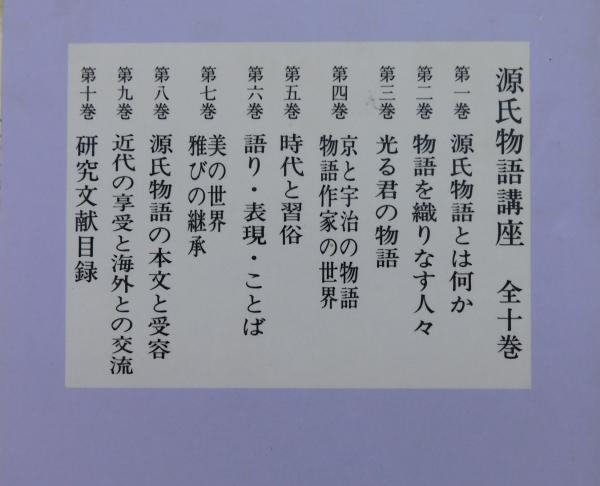 源氏物語講座　全十巻
第一巻　源氏物語とは何か
第二巻　物語を織りなす人々
第三巻　光る君の物語
第四巻　京と宇治の物語
物語作家の世界
第五巻　時代と習俗
第六巻　語り・表現・ことば
第七巻　美の世界
雅びの継承
第八巻　源氏物語の本文と受容
第九巻　近代の享受と海外との交流
第十巻　研究文献目録